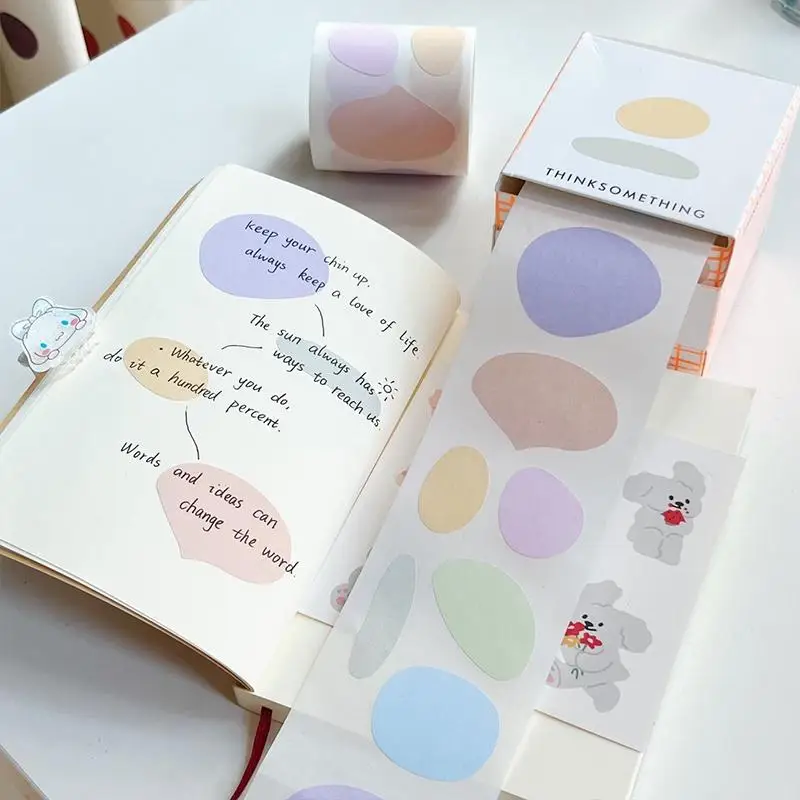 THINKSOMETHING
keep your chin up,
always keep a love of life.
The sun always has
ways to reach us.
· Whatever you do,
do it a hundred percent.
Words and ideas can
change the word.